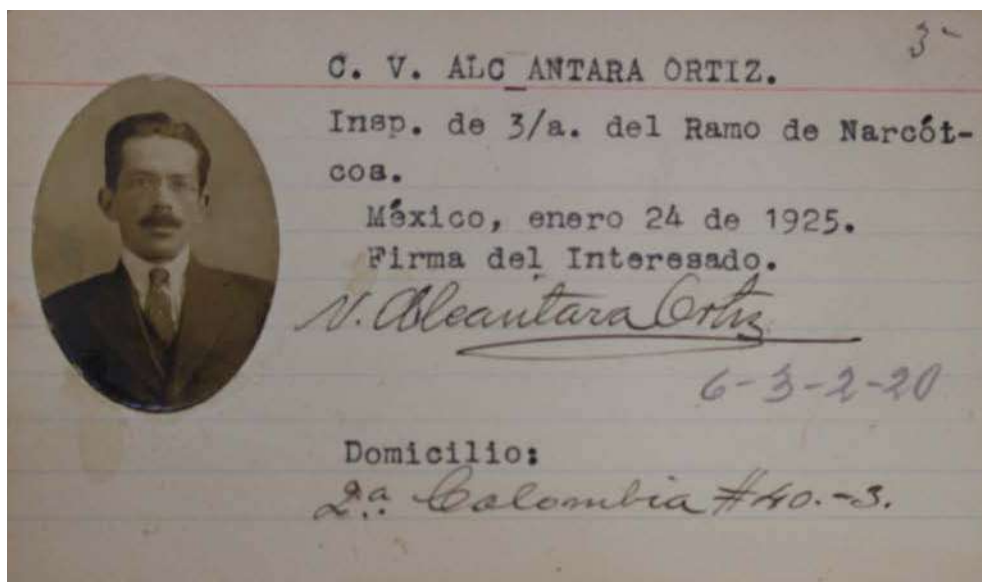 3-
C. V. ALC_ANTARA ORTIZ.
Insp. de 3/a. del Ramo de Narcót-
cos.
México, enero 24 de 1925.
Firma del Interesado.
V. Alcantara Ortiz
6-3-2-20
Domicilio:
2.ª Colombia #40.-3.